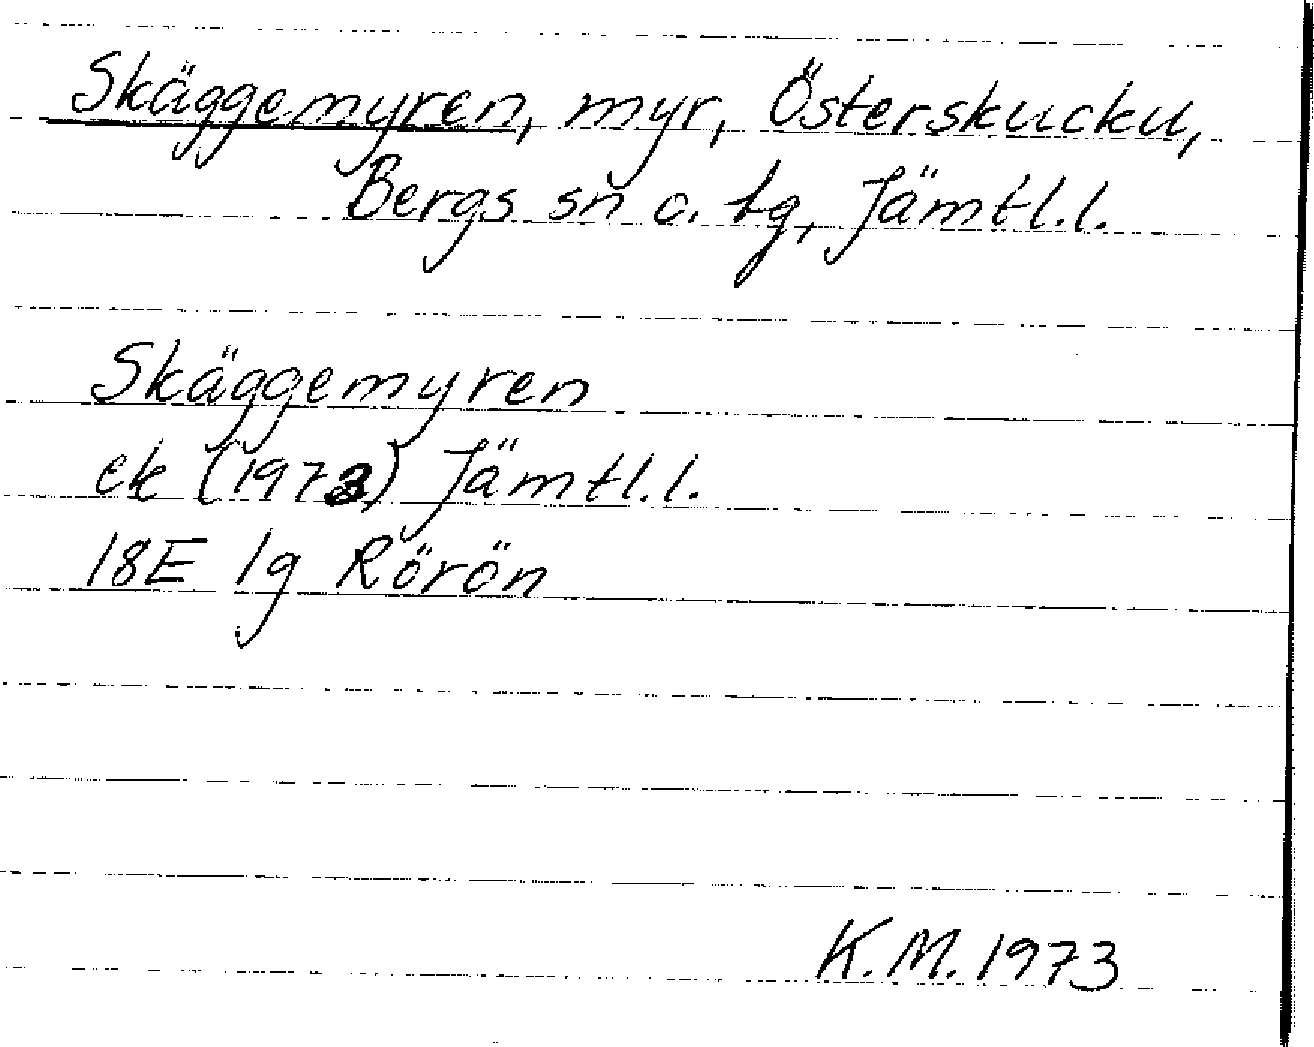 Skäggemyren, myr, Österskucku,
Bergs sn o. tg, Jämtl.l.
Skäggemyren
ek (1973) Jämtl.l.
18E 1g Rörön
K.M. 1973